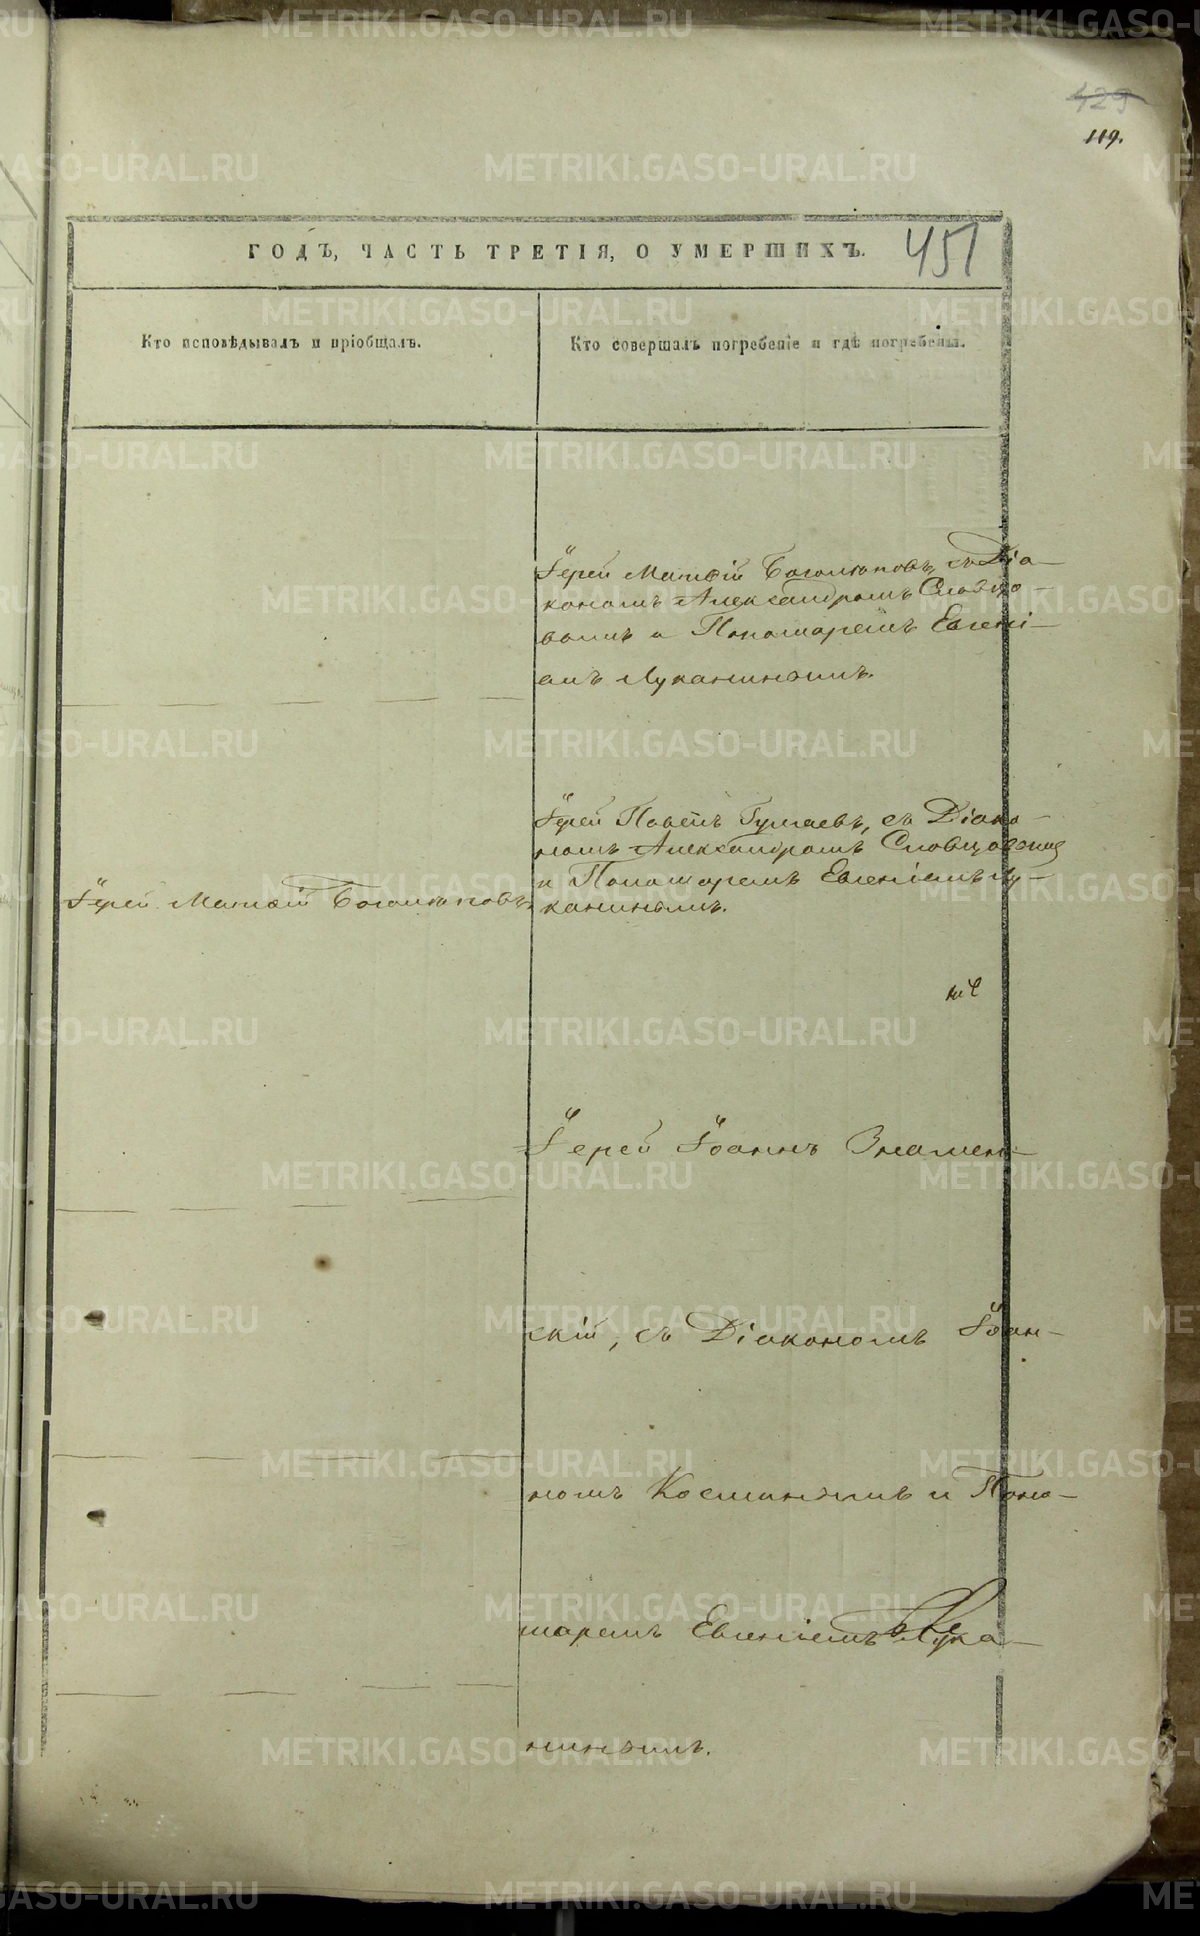 429
119.
ГОДЪ, ЧАСТЬ ТРЕТІЯ, О УМЕРШИХЪ.
451
Кто исповѣдывалъ и пріобщалъ.
Кто совершалъ погребеніе и гдѣ погребены.
Іерей Матѳій Боголюповъ, съ Діа-
кономъ Александромъ Словцо-
вымъ и Пономаремъ Евгені-
емъ Луканинымъ.
Іерей Матѳій Боголюповъ.
Іерей Павелъ, съ Діако-
номъ Александромъ Словцовымъ
и Пономаремъ Евгеніемъ Лу-
канинымъ.
Іерей Іоаннъ Знамен-
скій, съ Діакономъ Іоан-
номъ Косминымъ и Поно-
маремъ Евгеніемъ Лука-
нинымъ.
METRIKI.GASO-URAL.RU